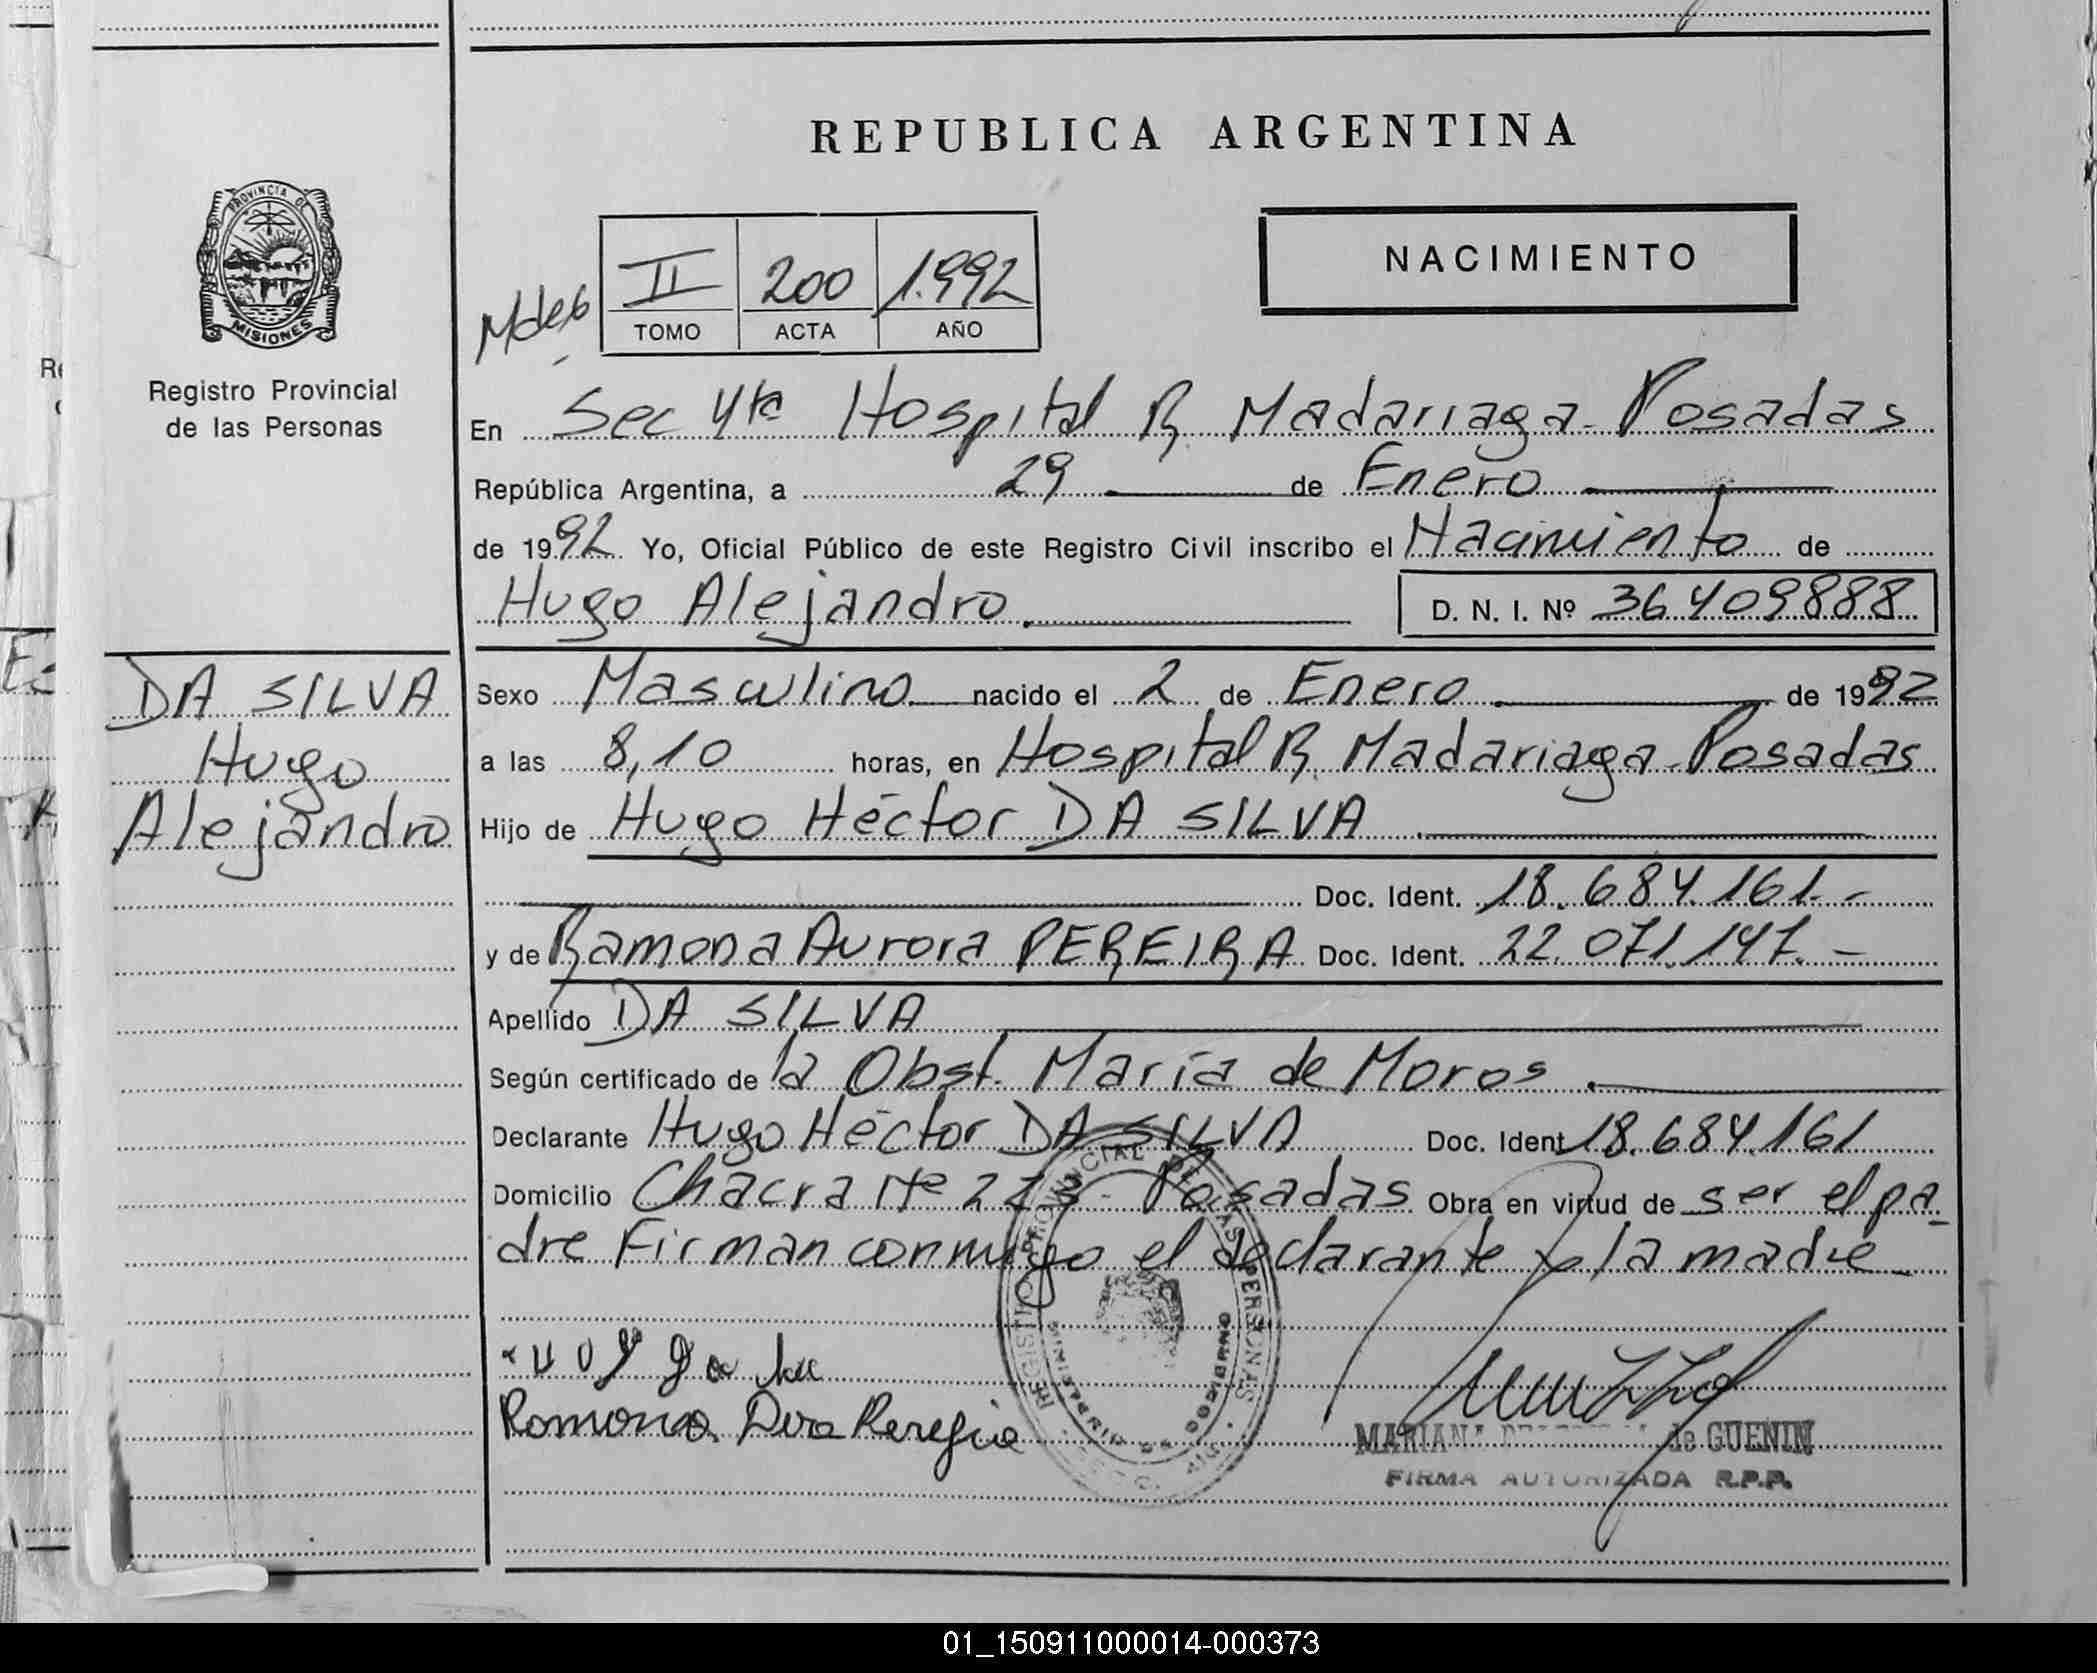 REPUBLICA ARGENTINA
PROVINCIA DE
MISIONES
Registro Provincial
de las Personas
NACIMIENTO
II 200 1.992
TOMO ACTA AÑO
En Sec 4ta Hospital R. Madariaga - Posadas
República Argentina, a 29 de Enero
de 1992 Yo, Oficial Público de este Registro Civil inscribo el Nacimiento de
Hugo Alejandro. D. N. I. Nº 36.409888
DA SILVA
Hugo
Alejandro
Sexo Masculino nacido el 2 de Enero de 1992
a las 8,10 horas, en Hospital R. Madariaga - Posadas
Hijo de Hugo Héctor DA SILVA
Doc. Ident. 18.684.161.-
y de Ramona Aurora PEREIRA Doc. Ident. 22.071.147.-
Apellido DA SILVA
Según certificado de la Obst. María de Moros.
Declarante Hugo Héctor DA SILVA Doc. Ident. 18.684.161
Domicilio Chacra Nº - Posadas Obra en virtud de ser el pa-
dre Firman conmigo el declarante y la madre
REGISTRO PROVINCIAL DE LAS PERSONAS
MINISTERIO DE GOBIERNO
Ramona
MARIANA de GUENIN
FIRMA AUTORIZADA R.P.P.
01_150911000014-000373